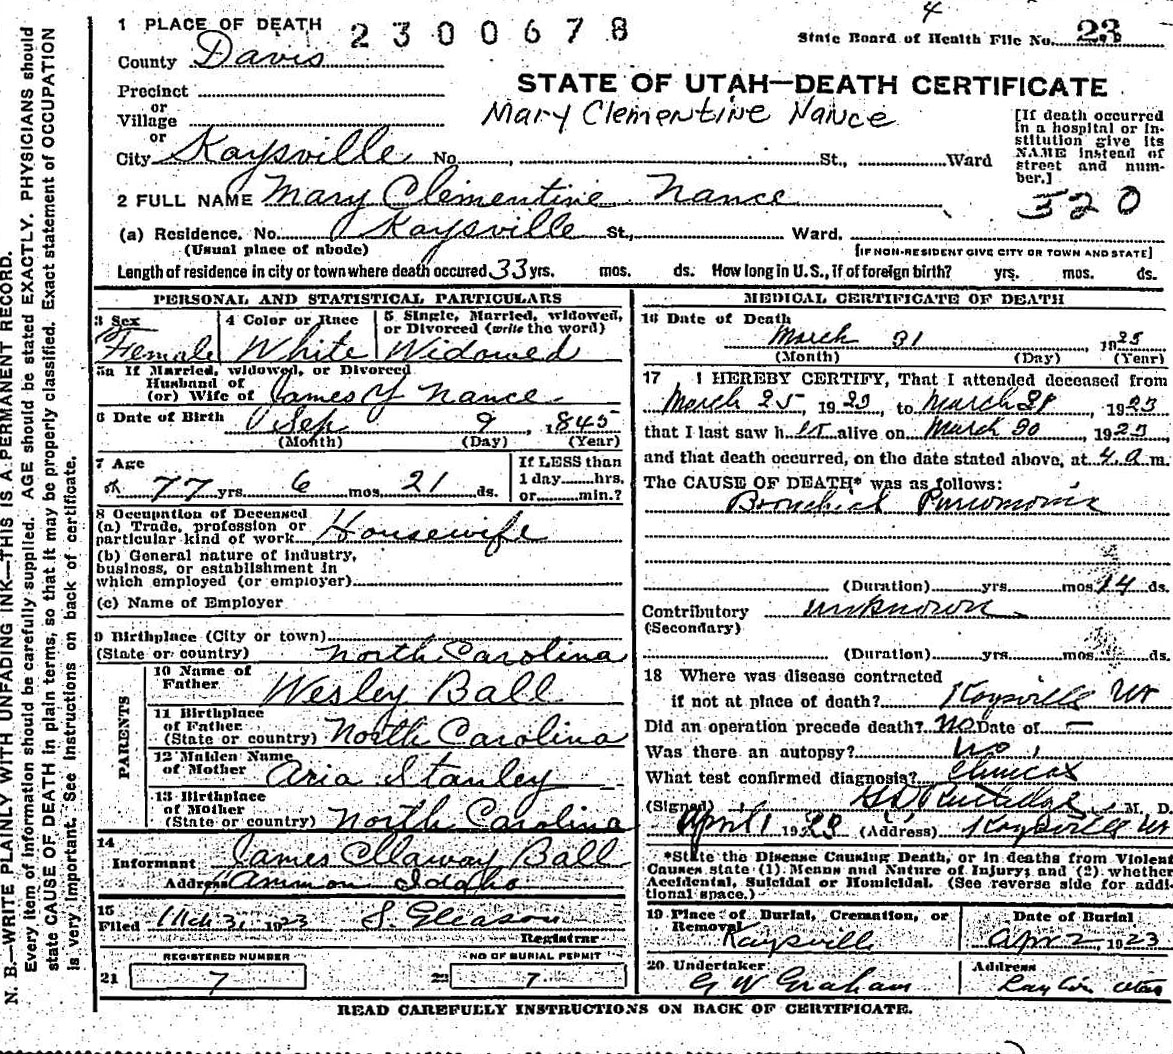 N. B.—WRITE PLAINLY WITH UNFADING INK—THIS IS A PERMANENT RECORD.
Every item of information should be carefully supplied. AGE should be stated EXACTLY. PHYSICIANS should
state CAUSE OF DEATH in plain terms, so that it may be properly classified. Exact statement of OCCUPATION
is very important. See instructions on back of certificate.
4
1 PLACE OF DEATH 2300678 State Board of Health File No. 23
County Davis
STATE OF UTAH—DEATH CERTIFICATE
Precinct
or
Village
Mary Clementine Nance
or
City Kaysville No. , St., Ward
[If death occurred
in a hospital or in-
stitution give its
NAME instead of
street and num-
ber.]
2 FULL NAME Mary Clementine Nance
320
(a) Residence. No. Kaysville St., Ward.
(Usual place of abode) [IF NON-RESIDENT GIVE CITY OR TOWN AND STATE]
Length of residence in city or town where death occured 33 yrs. mos. ds. How long in U.S., if of foreign birth? yrs. mos. ds.
PERSONAL AND STATISTICAL PARTICULARS
3 Sex 4 Color or Race 5 Single, Married, widowed,
or Divorced (write the word)
Female White Widowed
5a If Married, widowed, or Divorced
Husband of
(or) Wife of James Y Nance
6 Date of Birth Sep 9, 1845
(Month) (Day) (Year)
7 Age If LESS than
77 yrs. 6 mos. 21 ds. 1 day......hrs.
or......min.?
8 Occupation of Deceased
(a) Trade, profession or
particular kind of work Housewife
(b) General nature of industry,
business, or establishment in
which employed (or employer)
(c) Name of Employer
9 Birthplace (City or town)
(State or country) North Carolina
PARENTS
10 Name of
Father Wesley Ball
11 Birthplace
of Father
(State or country) North Carolina
12 Maiden Name
of Mother Aria Stanley
13 Birthplace
of Mother
(State or country) North Carolina
14
Informant James Ollaway Ball
Address Ammon Idaho
15
Filed Mch 31 1923 S. Gleason
Registrar
REGISTERED NUMBER NO OF BURIAL PERMIT
21 7 22 7
MEDICAL CERTIFICATE OF DEATH
16 Date of Death
March 31, 1923
(Month) (Day) (Year)
17 I HEREBY CERTIFY, That I attended deceased from
March 25, 1923, to March 31, 1923
that I last saw h er alive on March 30, 1923
and that death occurred, on the date stated above, at 4 a m.
The CAUSE OF DEATH* was as follows:
Bronchial Pneumonia
(Duration) yrs. mos. 14 ds.
Contributory unknown
(Secondary)
(Duration) yrs. mos. ds.
18 Where was disease contracted
if not at place of death? Kaysville Ut
Did an operation precede death? no Date of —
Was there an autopsy? no
What test confirmed diagnosis? Clinical
(Signed) Rutledge, M. D.
April 1 1923 (Address) Kaysville Ut
*State the Disease Causing Death, or in deaths from Violent
Causes state (1) Means and Nature of Injury; and (2) whether
Accidental, Suicidal or Homicidal. (See reverse side for addi
tional space.)
19 Place of Burial, Cremation, or Date of Burial
Removal
Kaysville Apr 2, 1923
20 Undertaker Address
G W Graham Layton Utah
READ CAREFULLY INSTRUCTIONS ON BACK OF CERTIFICATE.